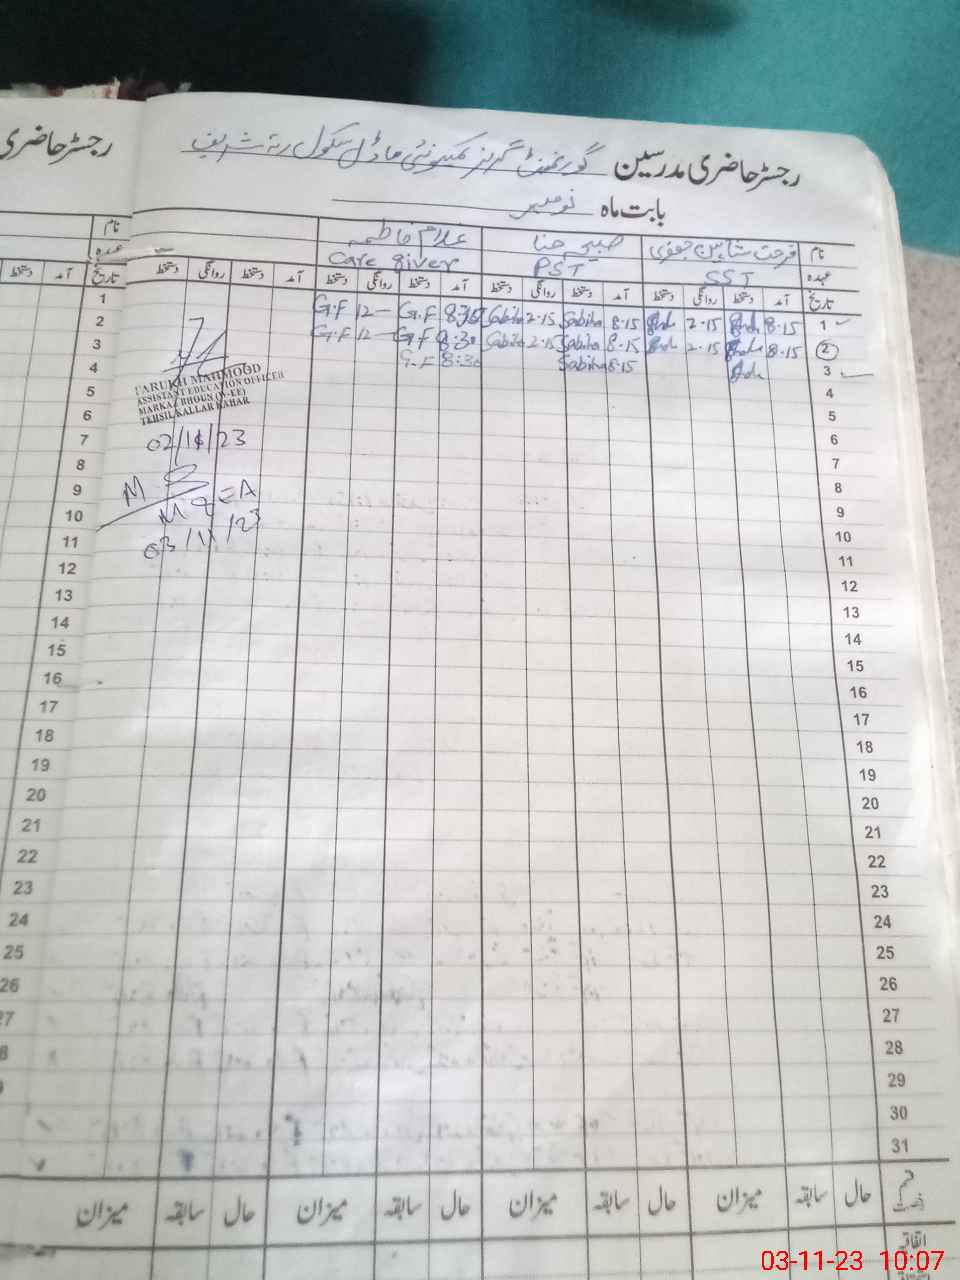 رجسٹر حاضری مدرسین گورنمنٹ گرلز کمیونٹی ماڈل سکول رتہ شریف
رجسٹر حاضری
بابت ماہ نومبر
نام فرحت شاہین جعفری صبیحہ حنا غلام فاطمہ
عہدہ SST PST Care giver
تاریخ آمد دستخط روانگی دستخط آمد دستخط روانگی دستخط آمد دستخط روانگی دستخط آمد دستخط روانگی دستخط
1 8.15 2.15 8.15 Sabiha 2.15 Sabiha G.F 12 G.F
2 8.15 2.15 8.15 Sabiha 2.15 Sabiha 8:30 G.F 12 G.F
3 8.15 Sabiha 8:30 G.F
4
5
6
7
8
9
10
11
12
13
14
15
16
17
18
19
20
21
22
23
24
25
26
27
28
29
30
31
TARUKH MAHMOOD
ASSISTANT EDUCATION OFFICER
MARKAZ BHOUN (W-EE)
TEHSIL KALLAR KAHAR
02/11/23
MEA
03/11/23
قسم رخصت حال سابقہ میزان حال سابقہ میزان حال سابقہ میزان حال سابقہ میزان
اتفاقیہ
نام
عہدہ
تاریخ آمد دستخط
1
2
3
4
5
6
7
8
9
10
11
12
13
14
15
16
17
18
19
20
21
22
23
24
25
26
03-11-23 10:07